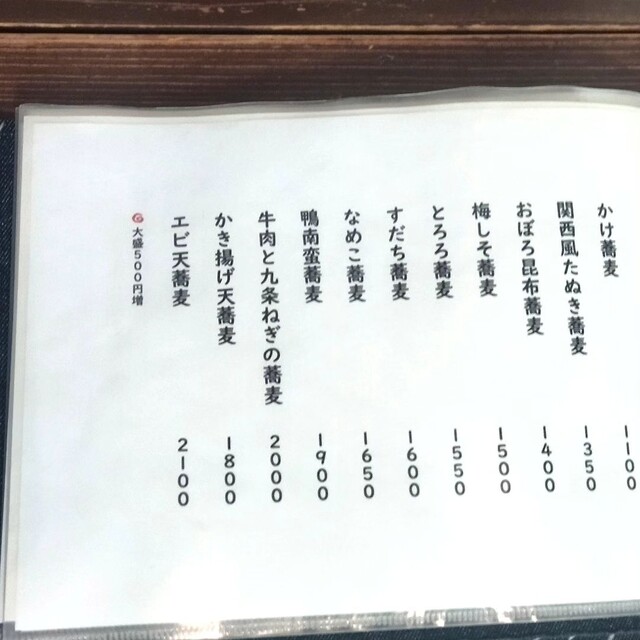 かけ蕎麦 1100
関西風たぬき蕎麦 1350
おぼろ昆布蕎麦 1400
梅しそ蕎麦 1500
とろろ蕎麦 1550
すだち蕎麦 1600
なめこ蕎麦 1650
鴨南蛮蕎麦 1900
牛肉と九条ねぎの蕎麦 2000
かき揚げ天蕎麦 1800
エビ天蕎麦 2100
大盛500円増